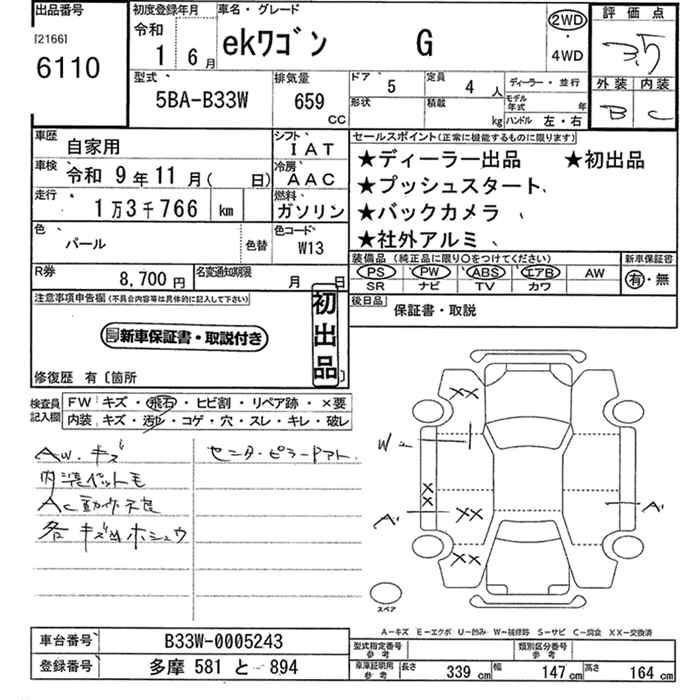 出品番号
[2166]
6110
初度登録年月
令和
1 6月
車名・グレード
ekワゴン G
2WD
4WD
評価点
3.5
外装 内装
B C
型式
5BA-B33W
排気量
659
cc
ドア 5
形状
定員 4 人
積載 kg
ディーラー・並行
モデル年式 年
ハンドル 左・右
車歴
自家用
シフト
IAT
車検
令和 9年11月( 日)
冷房
AAC
走行
1万3千766 km
燃料
ガソリン
色
パール
色替
色コード
W13
R券
8,700円
名変通知期限
月 日
セールスポイント(正常に機能するものに限ります)
★ディーラー出品 ★初出品
★プッシュスタート
★バックカメラ
★社外アルミ
装備品(純正品に限り○をつけてください)
PS PW ABS エアB AW
SR ナビ TV カワ
新車保証書
有・無
後日品
保証書・取説
注意事項申告欄(不具合内容等は具体的に記入して下さい)
新車保証書・取説付き
初出品
修復歴 有〔箇所 〕
検査員記入欄
FW:キズ・飛石・ヒビ割・リペア跡・×要
内装:キズ・汚レ・コゲ・穴・スレ・キレ・破レ
AW.キズ
内装ペットモ
AC動作不良
各キズ凹ホシュウ
センターピラーアト.
XX
W
F
X
X
A'
XX
A'
XX
スペア
A-キズ E-エクボ U-凹み W-補修跡 S-サビ C-腐食 XX-交換済
車台番号
B33W-0005243
登録番号
多摩 581 と 894
型式指定番号
参考
類別区分番号
参考
車庫証明用
参考
長さ 339 cm
幅 147 cm
高さ 164 cm